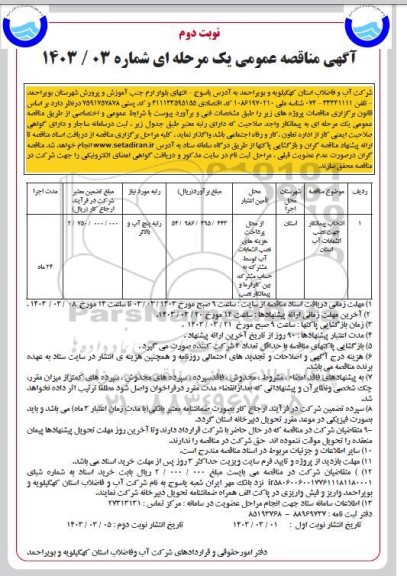 نوبت دوم
آگهی مناقصه عمومی یک مرحله ای شماره ۰۳ / ۱۴۰۳
شرکت آب و فاضلاب استان کهگیلویه و بویراحمد به آدرس یاسوج - انتهای بلوار ارم جنب آموزش و پرورش شهرستان بویراحمد
- تلفن ۳۳۳۴۱۱۱۱ - ۰۷۴ شناسه ملی ۱۰۸۶۱۹۷۰۲۱۰ کد اقتصادی ۴۱۱۱۳۴۵۹۵۱۵۵ و کد پستی ۷۵۹۱۷۵۷۸۷۸ درنظر دارد بر اساس
قانون برگزاری مناقصات پروژه های زیر را طبق مشخصات فنی و برآورد پیوست با شرایط عمومی و اختصاصی از طریق مناقصه
عمومی یک مرحله ای به پیمانکار واجد صلاحیت که دارای رتبه معتبر طبق جدول زیر ، ثبت درسامانه ساجار و دارای گواهی
صلاحیت ایمنی کار از اداره تعاون ، کار و رفاه اجتماعی باشد واگذار نماید . کلیه مراحل برگزاری مناقصه از دریافت اسناد مناقصه تا
ارائه پیشنهاد مناقصه گران و بازگشایی پاکتها از طریق درگاه سامانه ستاد به آدرس www.setadiran.ir انجام خواهد شد. مناقصه
گران درصورت عدم عضویت قبلی ، مراحل ثبت نام در سایت مذکور و دریافت گواهی امضای الکترونیکی را جهت شرکت در
مناقصه محقق سازند.
ردیف موضوع مناقصه شهرستان محل اجرا محل تامین اعتبار مبلغ برآورد(ریال) رتبه مورد نیاز مبلغ تضمین معتبر شرکت در فرآیند ارجاع کار (ریال) مدت اجرا
۱ انتخاب پیمانکار جهت نصب انشعابات آب استان استان از محل پرداخت هزینه های نصب انشعابات آب توسط مشترک به حساب مشترک بین کارفرما و پیمانکار نصب ۵۴ / ۹۸۶ / ۳۹۵ / ۴۴۳ رتبه پنج آب و بالاتر ۲ / ۷۵۰ / ۰۰۰ / ۰۰۰ ۲۴ ماه
۱) مهلت زمانی دریافت اسناد مناقصه از سایت : ساعت ۹ صبح مورخ ۱۴۰۳ / ۰۳ / ۰۳ تا ساعت ۱۴ مورخ ۰۸ / ۰۳ / ۱۴۰۳ .
۲) آخرین مهلت زمانی ارائه پیشنهادها : ساعت ۱۴ مورخ ۲۰ / ۰۳ / ۱۴۰۳ .
۳) زمان بازگشایی پاکتها : ساعت ۹ صبح مورخ ۲۱ / ۰۳ / ۱۴۰۳ .
۴) مدت اعتبار پیشنهادها : ۹۰ روز از تاریخ آخرین ارائه پیشنهاد .
۵) بازگشایی پاکتهای مناقصه با حداقل تعداد ۲ شرکت کننده صورت می گیرد .
۶) هزینه درج آگهی و اصلاحات و تجدید های احتمالی روزنامه و همچنین هزینه ی انتشار در سایت ستاد به عهده
برنده مناقصه می باشد.
۷) به پیشنهادهای فاقد امضاء ، مشروط ، مخدوش ، فاقد سپرده ، سپرده های مخدوش ، سپرده های کمتر از میزان مقرر،
چک شخصی و نظایر آن و پیشنهاداتی که بعد از انقضاء مدت مقرر در فراخوان واصل شود مطلقا ترتیب اثر داده نخواهد
شد.
۸) سپرده تضمین شرکت در فرآیند ارجاع کار بصورت ضمانتنامه معتبر بانکی (با مدت زمان اعتبار ۳ ماه) می باشد و باید
بصورت فیزیکی در موعد مقرر تحویل دبیرخانه استان گردد.
۹- متقاضیان شرکت در مناقصه که در حال حاضر با شرکت قرارداد دارند و تا آخرین روز مهلت تحویل پیشنهادها پیمان
منعقده را تحویل موقت ننموده اند حق شرکت در مناقصه را ندارند.
۱۰) سایر اطلاعات و جزئیات مربوط در اسناد مناقصه مندرج است.
۱۱) مهلت بازدید از پروژه و تایید فرم سایت ویزیت حداکثر ۳ روز پس از مهلت خرید اسناد می باشد.
دفتر ثبت نامه : ۸۸۹۶۹۷۳۷ - ۸۵۱۹۳۷۶۸
تاریخ انتشار نوبت اول : ۰۱ / ۰۳ / ۱۴۰۳ تاریخ انتشار نوبت دوم : ۰۵ / ۰۳ / ۱۴۰۳
دفتر امور حقوقی و قراردادهای شرکت آب وفاضلاب استان کهگیلویه و بویراحمد